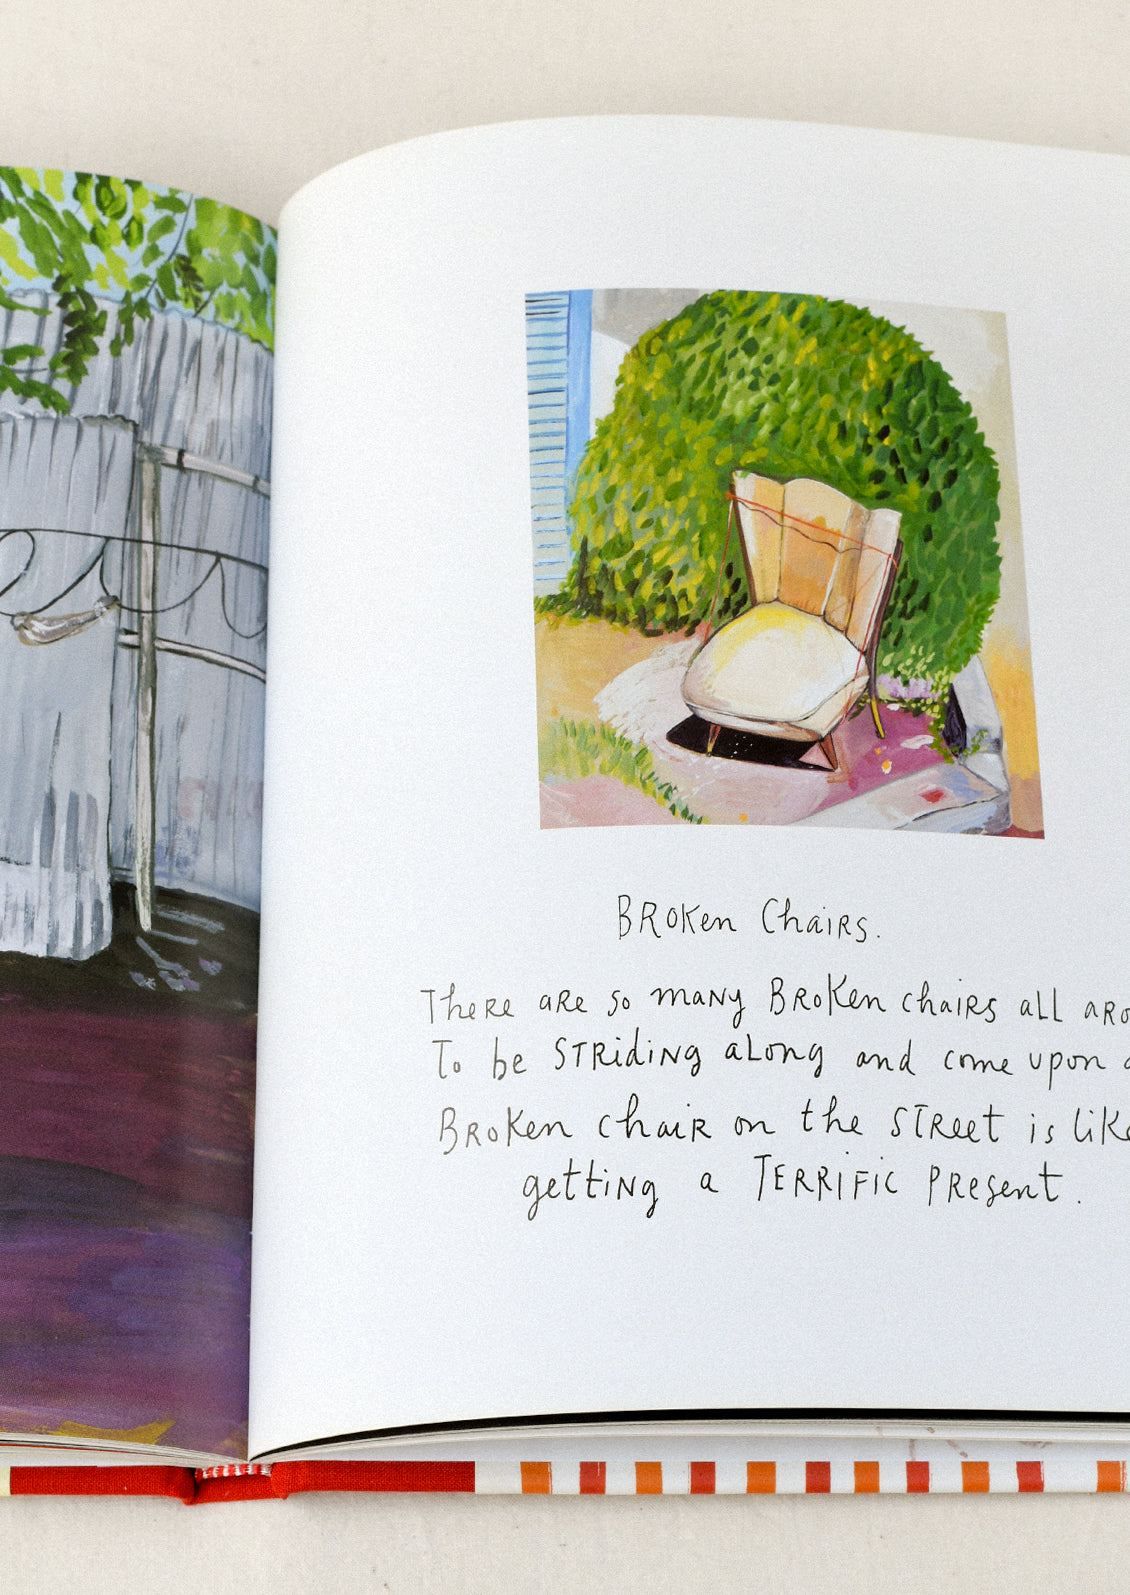 Broken Chairs.
There are so many Broken chairs all
To be striding along and come upon
Broken chair on the street is
getting a TERRIFIC Present.